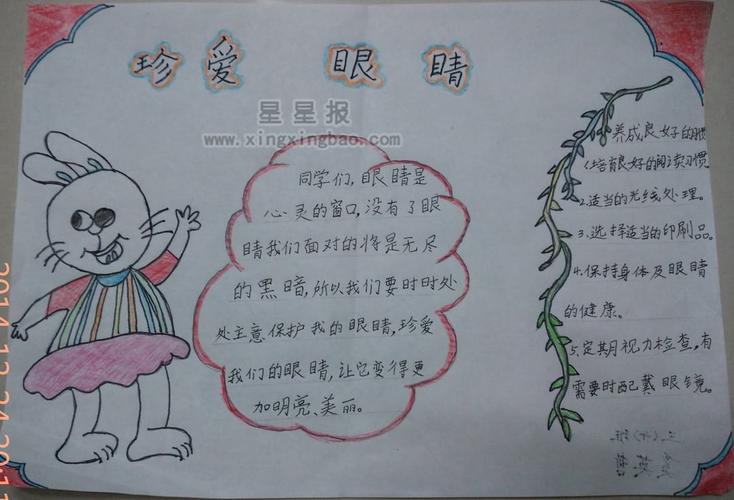 珍爱 眼睛
星星报
www.xingxingbao.com
同学们,眼睛是
心灵的窗口,没有了眼
睛我们面对的将是无尽
的黑暗,所以我们要时时处
处主意保护我的眼睛,珍爱
我们的眼睛,让它变得更
加明亮、美丽。
养成良好的习惯
1.培育良好的阅读习惯
2.适当的光线处理。
3.选择适当的印刷品。
4.保持身体及眼睛
的健康。
5.定期视力检查,有
需要时配戴眼镜。